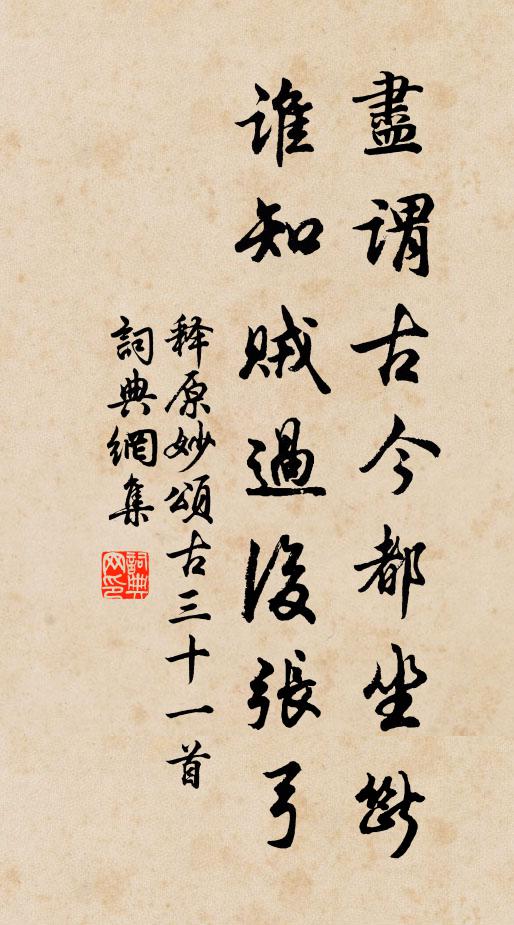 盡謂古今都坐斷
誰知賊過後張弓
釋原妙頌古三十一首
詞典網集
詞典网印